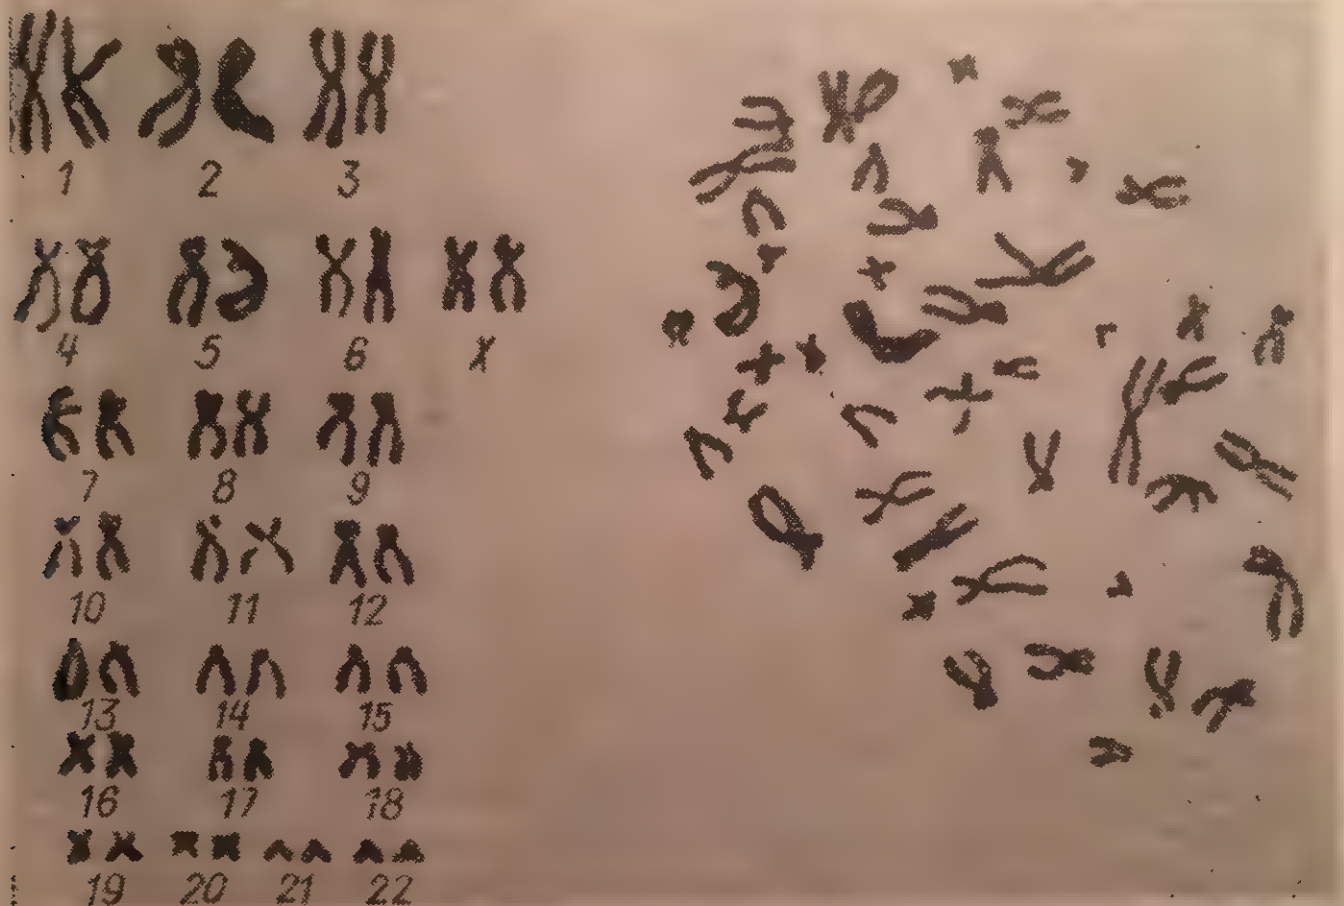 1 2 3
4 5 6 X
7 8 9
10 11 12
13 14 15
16 17 18
19 20 21 22